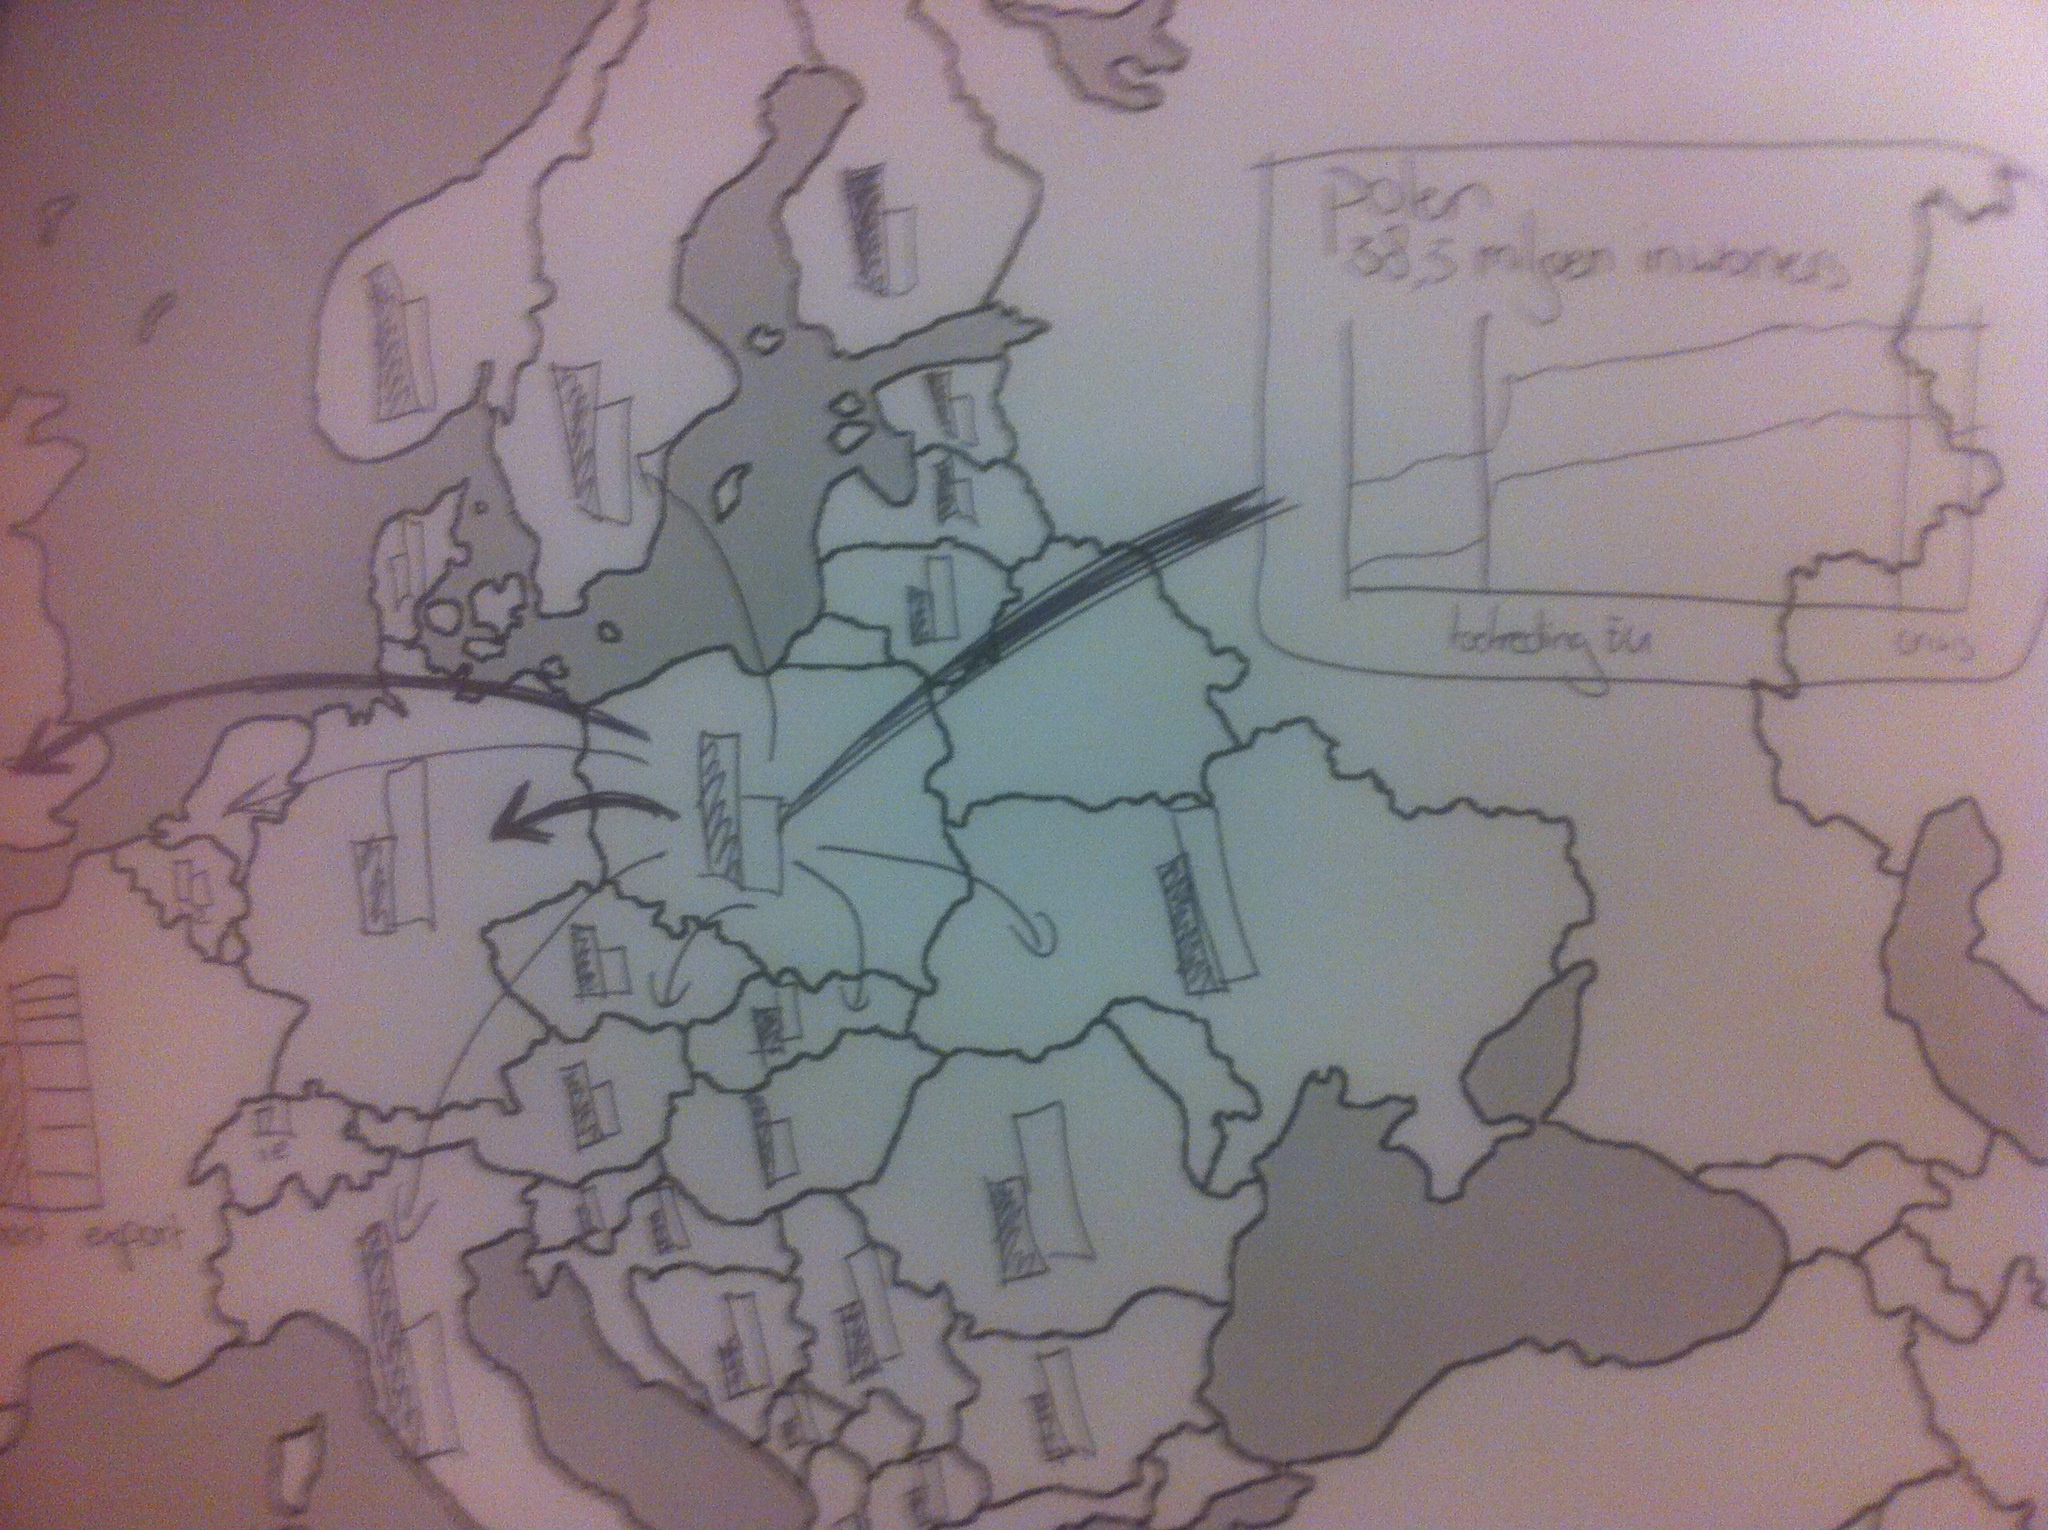 polen
38,5 miljoen inwoners
toetreding EU
crisis
export